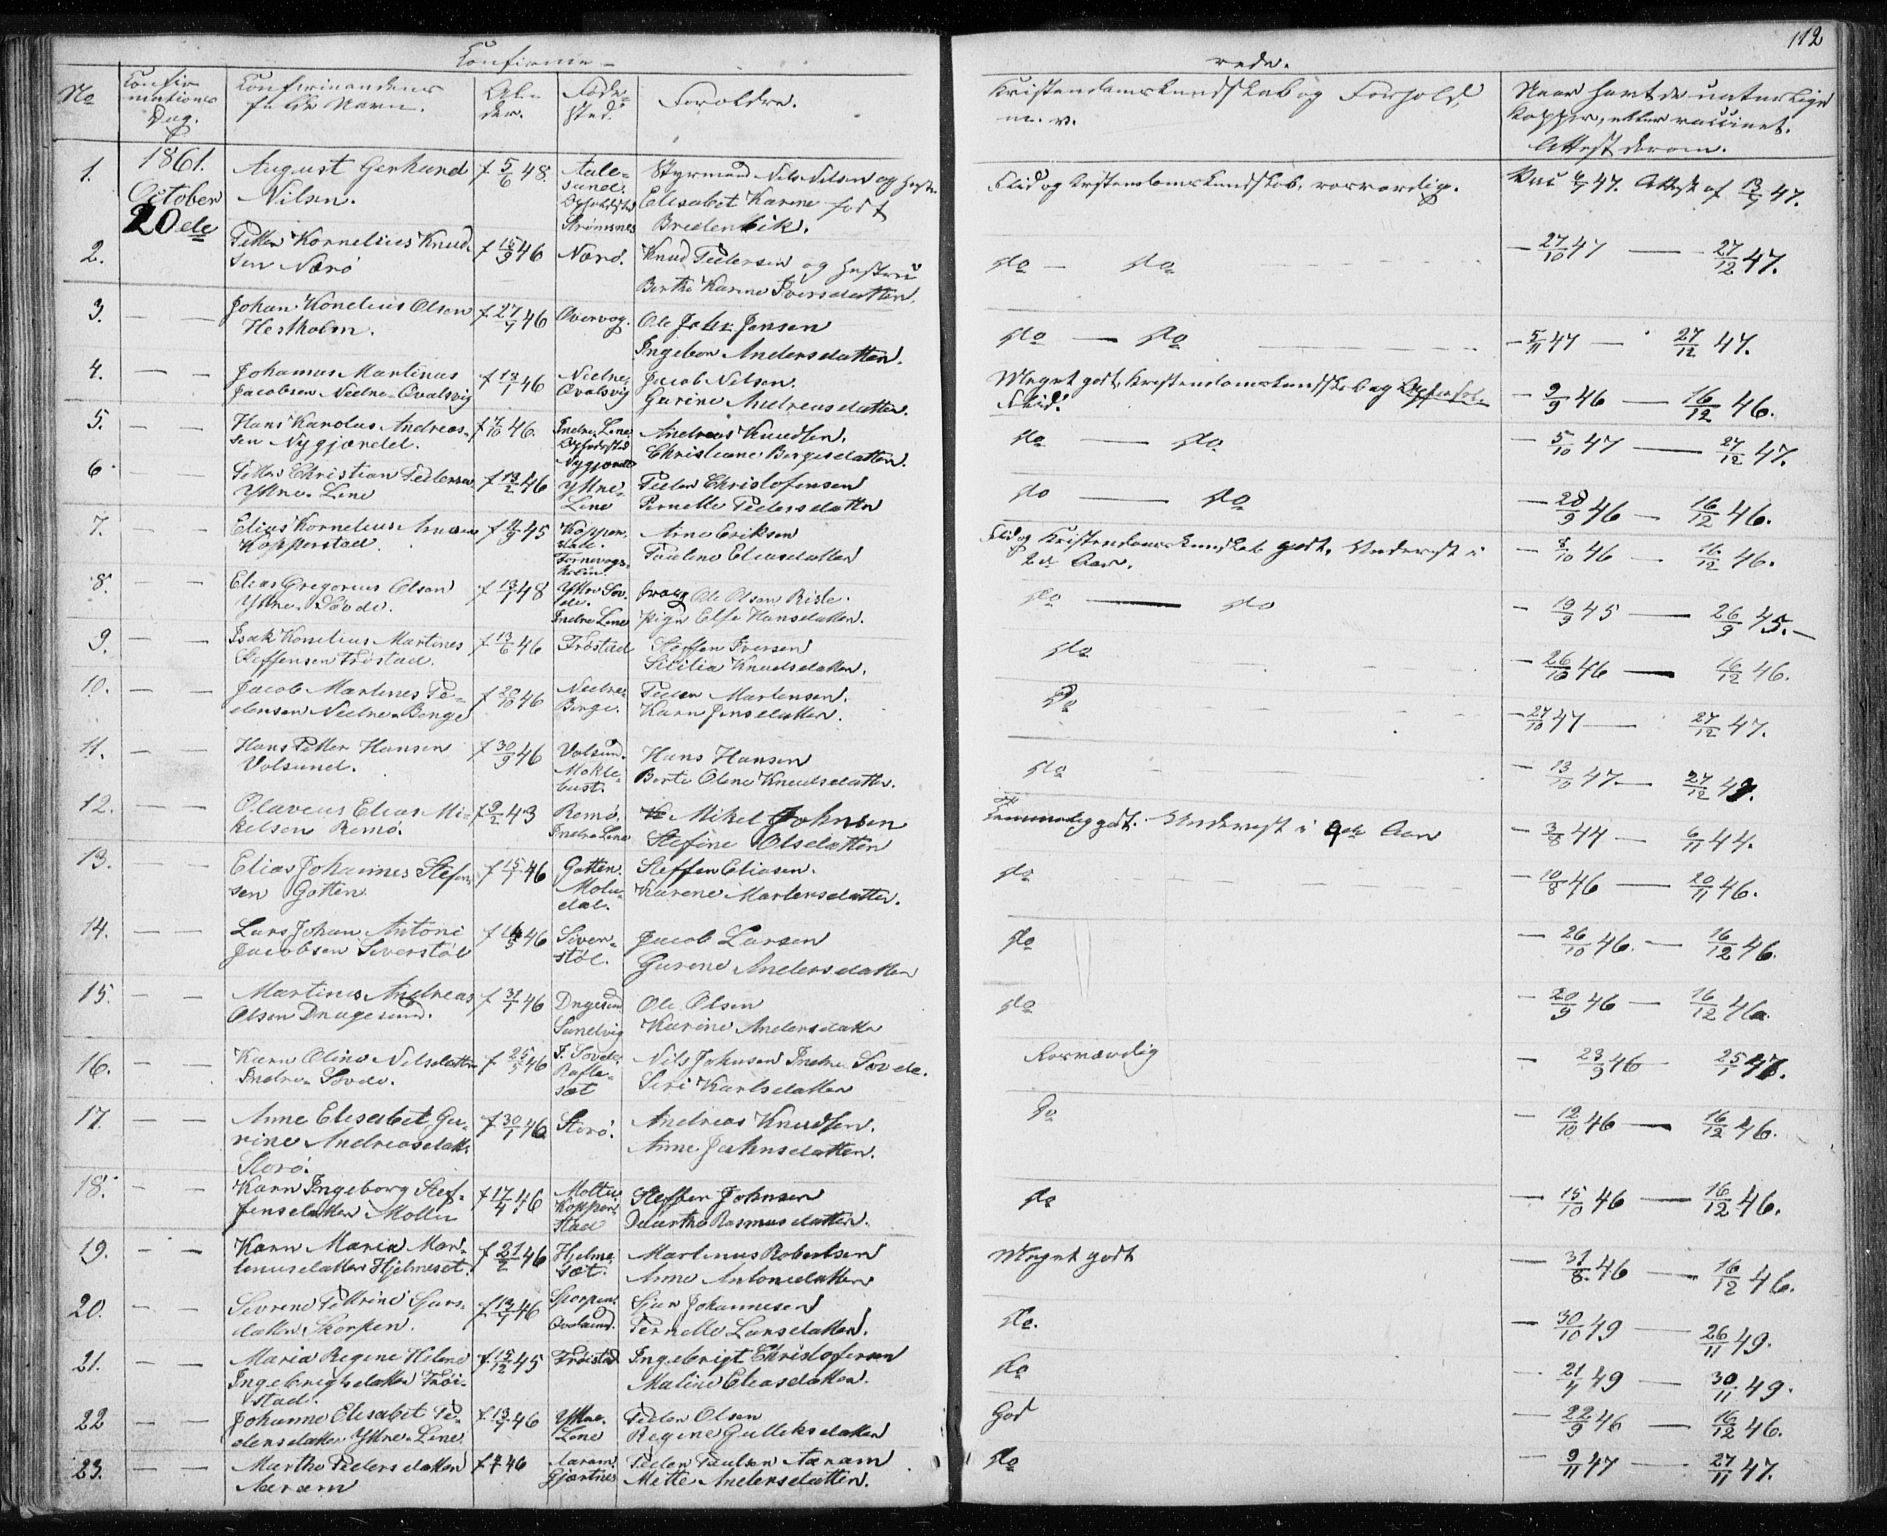 112
Confirme- rede.
No Confirmations Dag. Confirmandens fulde Navn. Alder. Fødested. Forældre. Kristendomskundskab og Forhold m. v. Naar havt de naturlige Kopper, eller vaccinet. Attest derom.
1861.
October
20de
1. August Gerhard Nilsen. f 5/6 48. Aalesund. Opholdsted Strømsnes Styrmand Nils Nilsen og Elisabet Karine født Bredenbik. Flid og Kristendomskundskab, rosværdig. 47. Attest af 13/7 47.
2. Petter Kornelius Knudsen Nærø f 15/9 46 Nærø. Knud Pedersen og Hustru Berthe Karine Iversdatter. do - do - 27/10 47 — 27/12 47.
3. — — Johan Konelius Olsen Hestholm. f 27/7 46 Overvog. Ole Jensen Ingebor Andersdatter. do — do - 5/11 47 — 27/12 47.
4. — — Johannes Martinus Jacobsen Nedre-Qvalsvig f 13/1 46 Nedre-Qvalsvig Jacob Nilsen. Gurine Andreasdatter. Meget godt, Kristendomskundskab og Flid. - 9/9 46 — 16/12 46.
5. — — Hans Karolus Andreassen Nygjærdet. f 7/10 46. Indre Line Opholdsted Nygjærdet Andreas Knudsen. Christiane Børgesdatter. do — do - 5/10 47 — 27/12 47.
6. — — Petter Christian Pedersen Yttre-Line f 13/2 46 Yttre-Line Peder Christofersen Pernille Pedersdatter do — do - 28/9 46 — 16/12 46.
7. — — Elias Kornelius Arnesen Kopperstad. f 45 Arne Eriksen Pauline Eliasdatter Flid og Kristendomskundskab godt. Undervist i 2de Aar. - 8/10 46 — 16/12 46.
8. — — Elias Gregorius Olsen Yttre-Søvde. f 13/1 48 Yttre Søvde. Indre Line Ole Olsen Riste. Pige Else Hansdatter. do — do - 19/9 45 — 26/9 45.—
9. — — Isak Konelius Martines Steffensen Frøstad. f 13/6 46 Frøstad Steffen Iversen Sililia Knudsdatter. do - 26/10 46 — 16/12 46.
10. — — Jacob Martines Pedersen Nedre-Berge f 20/10 46 Nedre-Berge. Peder Martensen. Karn Jensdatter. Do - 27/10 47 — 27/12 47.
11. — — Hans Petter Hansen Volsund. f 30/9 46 Volsund. Moklebust. Hans Hansen Berte Oline Knudsdatter. do - 13/10 47 — 27/12 47.
12. — — Olaveus Elias Mikelsen Remø. f 9/2 43 Remø. Indre Line Mikel Johnsen Stefine Olsdatter Temmelig godt. Undervist i 4de Aar - 3/8 44 — 6/11 44.
13. — — Elias Johannes Stefensen Gotten f 15/1 46 Gotten. Moludal. Steffen Eliasen. Karene Martensdatter. do - 10/8 46 — 20/11 46.
14. — — Lars Johan Antoni Jacobsen Siverstøl f 46 Siverstøl. Jacob Larsen Gurene Andersdatter do - 26/10 46. — 16/12 46.
15. — — Martinus Andreas Olsen Dragesund. f 31/1 46 Dragesund Sandvig Ole Olsen Karine Andersdatter do - 20/9 46 — 16/12 46.
16. — — Karn Olina Nilsdatter Indre-Søvde. f 25/5 46 I. Søvde. Raflesæt Nils Johnsen Indre Søvde. Siri Karlsdatter Rosværdig - 23/9 46 25/1 47.
17. — — Anne Elisabet Gurine Andreasdatter Storø. f 30/1 46 Storø. Andreas Knudsen. Anne Johnsdatter. Do - 12/10 46 — 16/12 46.
18. — — Karn Ingeborg Steffensdatter Moltu f 17/4 46 Moltu Kopperstad Steffen Johnsen Marthe Rasmusdatter. do — 15/10 46 — 16/12 46.
19. — — Karn Maria Martinusdatter Hjelmeset. f 21/2 46 Hjelmesæt. Martinus Robertsen Anne Antonsdatter Meget godt — 31/8 46 — 16/12 46.
20. — — Severene Pettrine Sjursdatter Skorpen. f 13/7 46 Skorpen Qvalsund. Sjur Johannesen Pernelle Larsdatter. do. — 30/10 49 — 26/11 49.
21. — — Maria Regine Helene Ingebrigtsdatter Frøistad. f 45 Frøistad Ingebrigt Christofersen Maline Eliasdatter. do — 21/7 49 — 30/11 49.
22 — — Johanne Elisabet Pedersdatter Yttre-Line. f 13/7 46 Yttre-Line Peder Olsen Regine Gulleksdatter God — 22/9 46 — 16/12 46.
23. — — Marthe Pedersdatter Aaram f 46 Aaram. Gjærtnes Peder Paulsen Aaram Mette Andersdatter. do — 9/11 47 — 27/11 47.